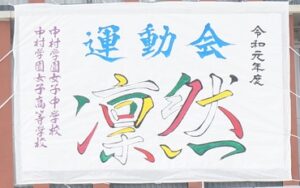 令和元年度
運動会
凛然
中村学園女子中学校
中村学園女子高等学校